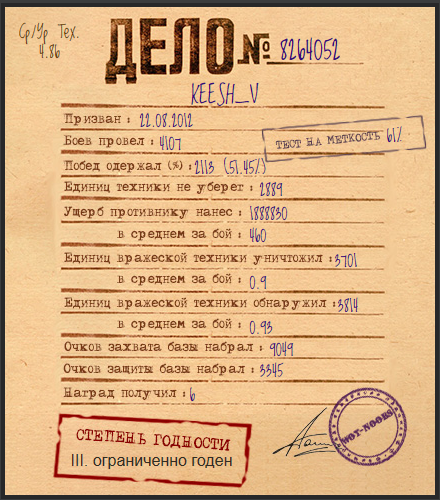 Ср/Ур Тех.
4.86
ДЕЛО № 8264052
KEESH_V
Призван : 22.08.2012
Боев провел : 4107
ТЕСТ НА МЕТКОСТЬ 61%
Побед одержал (%) : 2113 (51.45%)
Единиц техники не уберег : 2889
Ущерб противнику нанес : 1888830
в среднем за бой : 460
Единиц вражеской техники уничтожил : 3701
в среднем за бой : 0.9
Единиц вражеской техники обнаружил : 3814
в среднем за бой : 0.93
Очков захвата базы набрал : 9049
Очков защиты базы набрал : 3345
Наград получил : 6
СТЕПЕНЬ ГОДНОСТИ
III. ограниченно годен
WOT-NOOBS